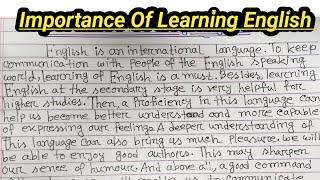 Importance Of Learning English
English is an international language. To keep
communication with people of the English speaking
world, learning of English is a must. Besides, learning
English at the secondary stage is very helpful for
higher studies. Then, a proficiency in this language can
help us become better understood and more capable
of expressing our feelings. A deeper understanding of
this language can also bring us much pleasure. We will
be able to enjoy good authors. This may sharpen
our sense of humour. And above all, a good command
us to communicate